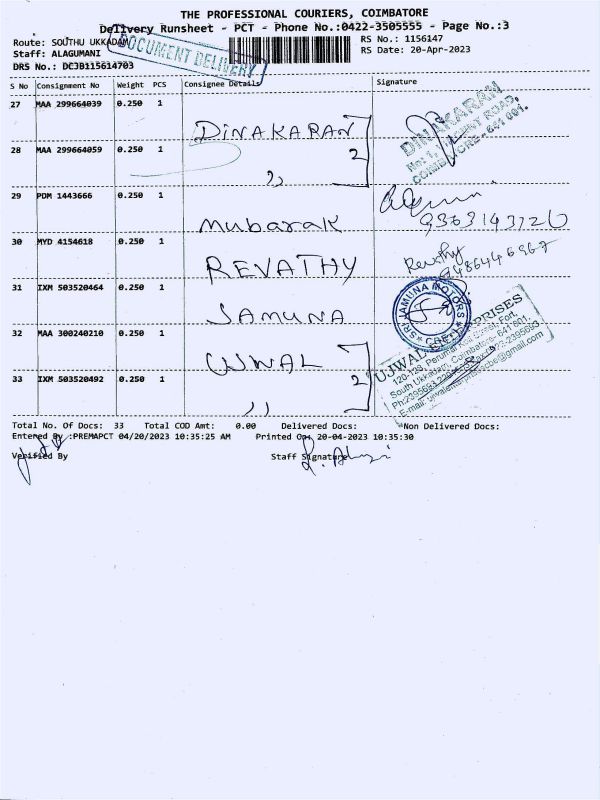 THE PROFESSIONAL COURIERS, COIMBATORE
Delivery Runsheet - PCT - Phone No.:0422-3505555 - Page No.:3
Route: SOUTHU UKKADAM
RS No.: 1156147
Staff: ALAGUMANI
RS Date: 20-Apr-2023
DOCUMENT DELIVERY
DRS No.: DCJB115614703
S No Consignment No Weight PCS Consignee Details Signature
27 MAA 299664039 0.250 1
DINAKARAN
DINAKARAN
28 MAA 299664059 0.250 1
2
COIMBATORE - 641 001.
,,
29 PDM 1443666 0.250 1
Mubarak
9363143720
30 MYD 4154618 0.250 1
REVATHY
Revathy
9486446967
31 IXM 503520464 0.250 1
JAMUNA
SRI JAMUNA MOTORS
32 MAA 300240210 0.250 1
UJWAL
2
UJWAL ENTERPRISES
South Ukkadam, Coimbatore - 641 001.
33 IXM 503520492 0.250 1
,,
Total No. Of Docs: 33 Total COD Amt: 0.00 Delivered Docs: Non Delivered Docs:
Entered By :PREMAPCT 04/20/2023 10:35:25 AM Printed On: 20-04-2023 10:35:30
Verified By Staff Signature